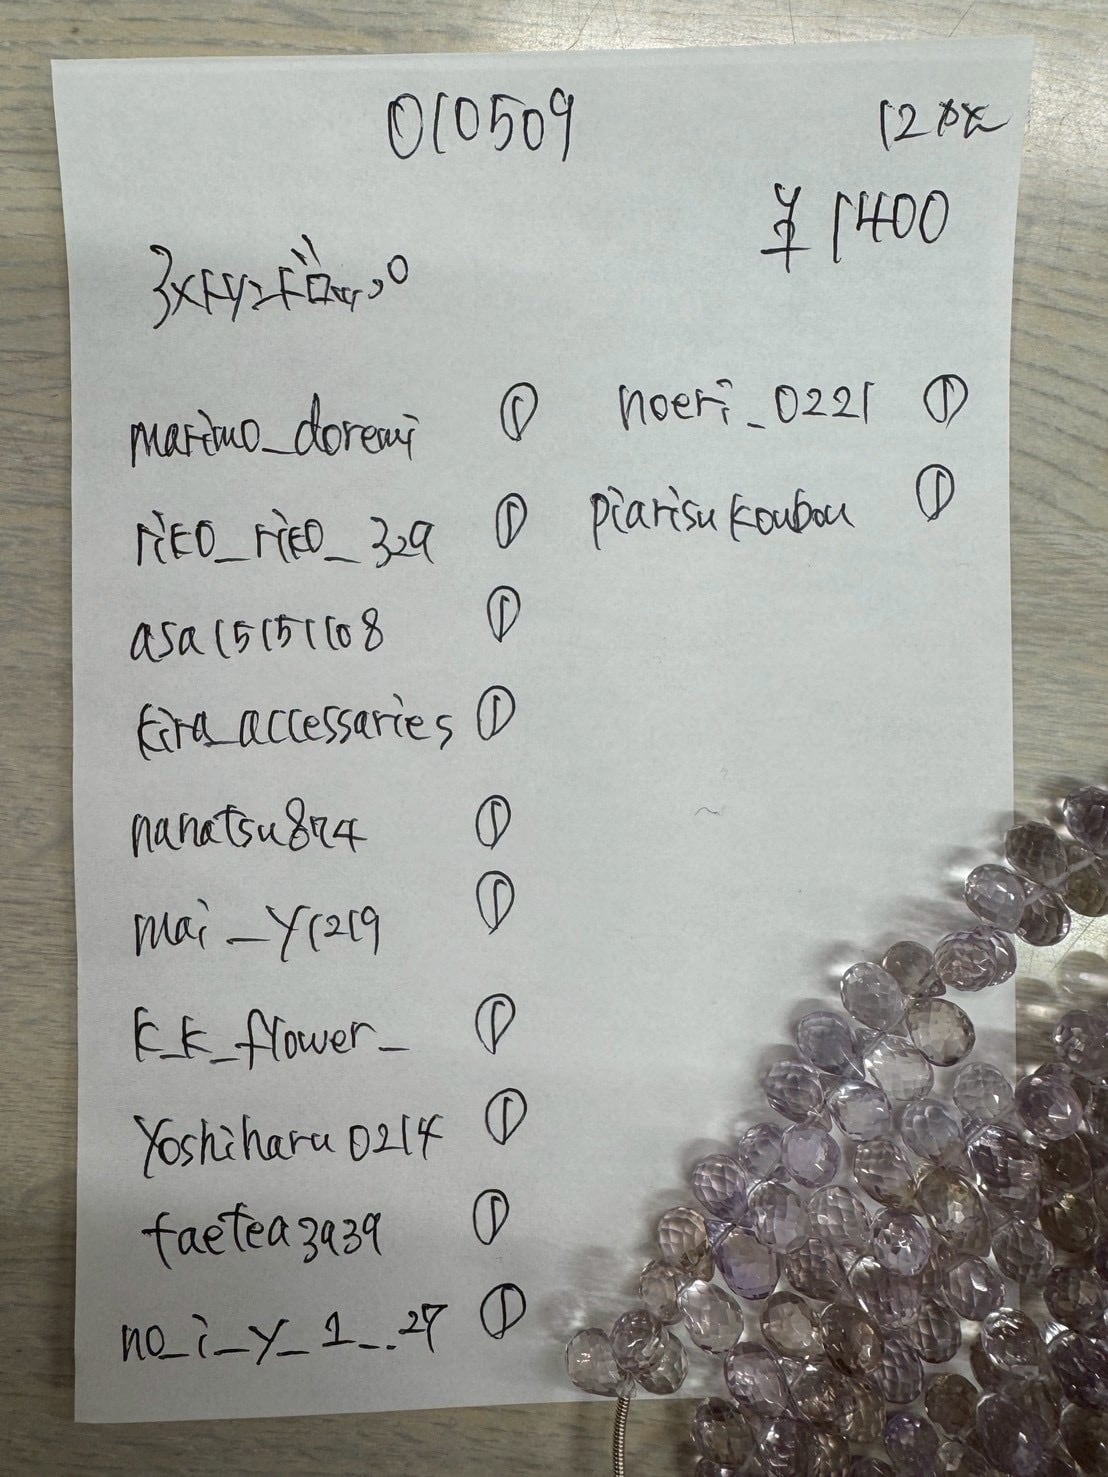 010509
12
¥1400
marimo_doremi ①
riko_riko_329 ①
asa15151108 ①
kira_accessaries ①
nanatsu874 ①
mai_y1219 ①
k_k_flower_ ①
yoshiharu0214 ①
taetea3939 ①
no_i_y_1_..27 ①
noeri_0221 ①
piarisukoubou ①